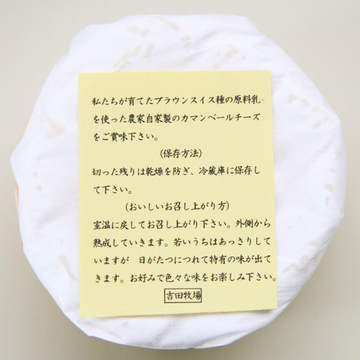 私たちが育てたブラウンスイス種の原料乳
を使った農家自家製のカマンベールチーズ
をご賞味下さい。
(保存方法)
切った残りは乾燥を防ぎ、冷蔵庫に保存し
て下さい。
(おいしいお召し上がり方)
室温に戻してお召し上がり下さい。外側から
熟成していきます。若いうちはあっさりして
いますが　日がたつにつれて特有の味が出て
きます。お好みで色々な味をお楽しみ下さい。
吉田牧場